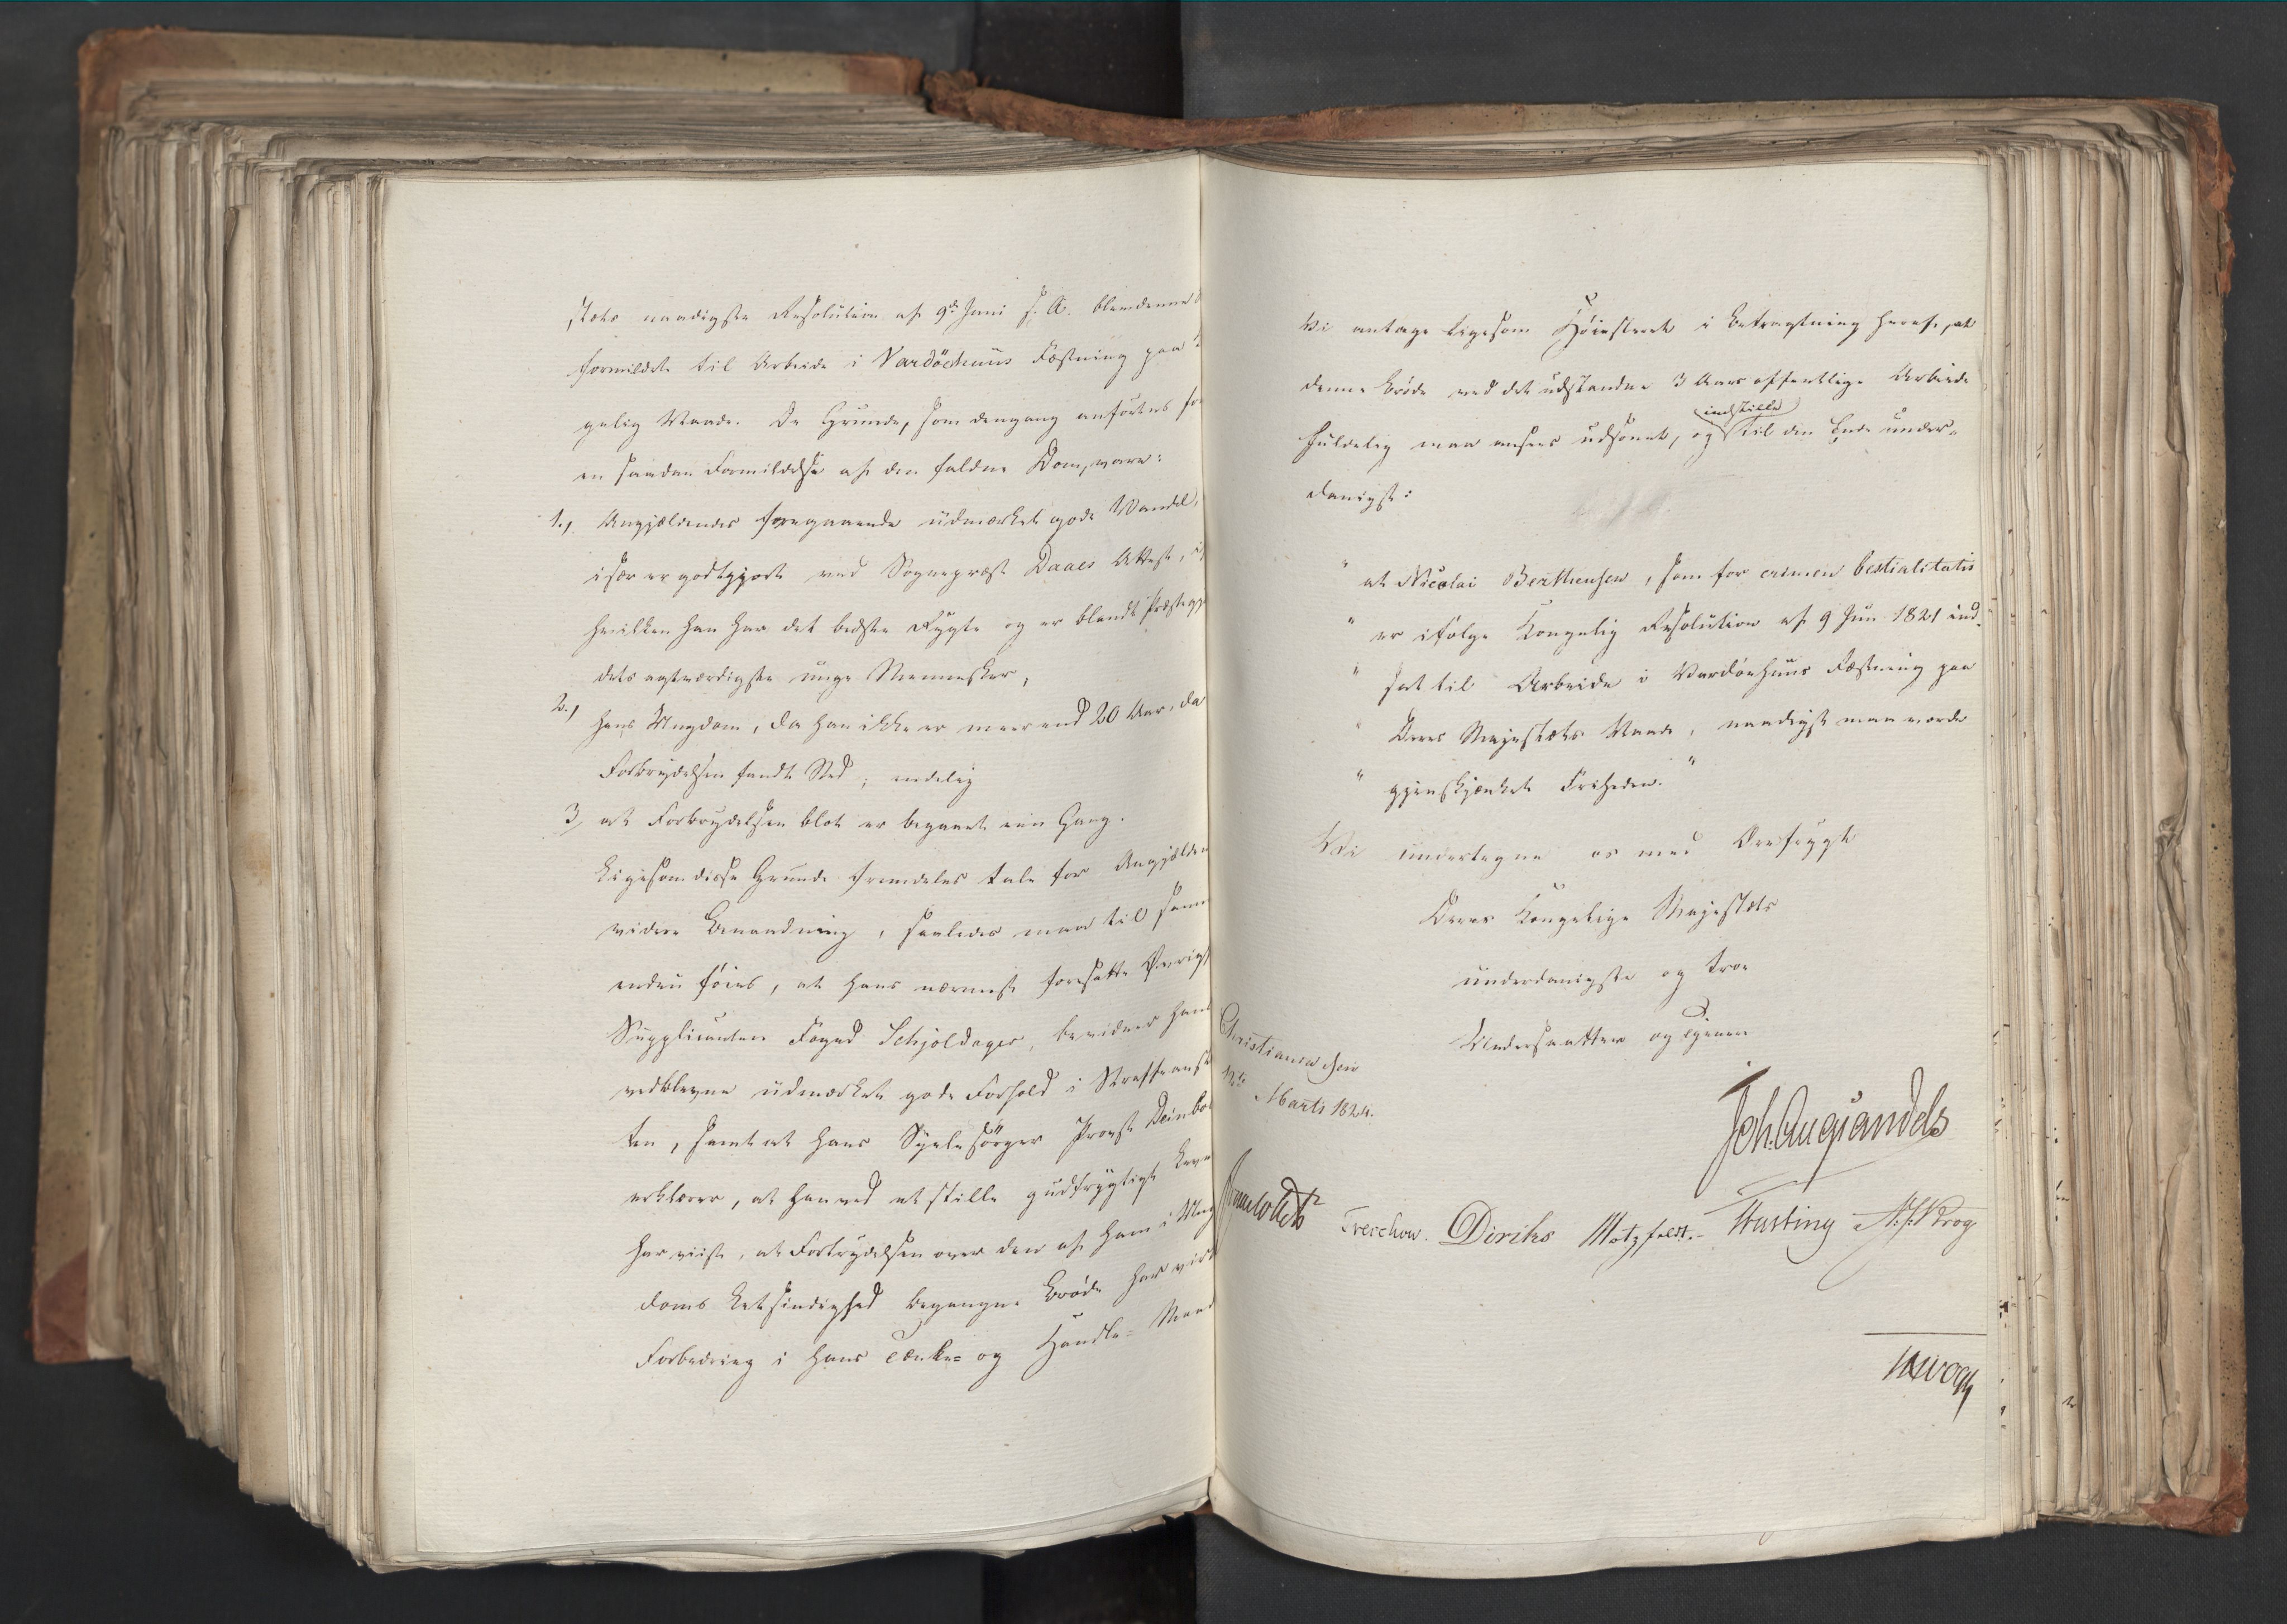 stæts naadigste Resolution af 9de Juni s. A. blev denne
formildet til Arbeide i Vardöehuus Fæstning paa
gelig Naade. De Grunde, som dengang anførtes for
en saadan Formildelse af den faldne Dom, vare:
1., Angjældendes foregaaende udmærket gode Vandel,
især er godtgjort ved Sognepræst Daaes Attest,
hvilken han har det bedste Rygte og er blandt Præstegjel
dets agtværdigste unge Mennesker,
2., hans Ungdom, da han ikke er meer end 20 Aar, da
Forbrydelsen fandt Sted; endelig
3, at Forbrydelsen blot er begaaet een Gang.
Ligesom disse Grunde fremdeles tale for Angjælden
videre Benaadning, saaledes maa til samme
endnu føies, at hans nærmest foresatte Øvrighed
Supplicanten Foged Schjöldager, bevidner hans
vedblevne udmærket gode Forhold i Straffeanstal
ten, samt at hans Sjelesørger Provst Deinboll
erklærer, at han ved et stille gudfrygtigt Levnet
har viist, at Fortrydelsen over den af ham i Ung
doms Letsindighed begangne Brøde har virket
Forbedring i hans Tænke= og Handle= Maade
Vi antage ligesom Höiesteret i Betragtning heraf, at
denne Brøde ved det udstandne 3 Aars offentlige Arbeide
fuldelig maa ansees udsonet, og indstille til den Ende under-
danigst:
" at Nicolai Berthensen, som for crimen bestialitatis
" er ifølge Kongelig Resolution af 9 Jun 1821 ind-
" sat til Arbeide i Vardöehuus Fæstning paa
" Deres Majestæts Naade, naadigst maa vorde
" gjenskjænket Friheden."
Vi undertegne os med Ærefrygt
Deres Kongelige Majestæts
underdanigste og troe
Undersaatter og Tjenere
Christiania den
Marts 1824.
Joh. Aug Sandels
Sommerhielm
Treschow. Diriks Motzfeldt. Fasting N. J. Krog